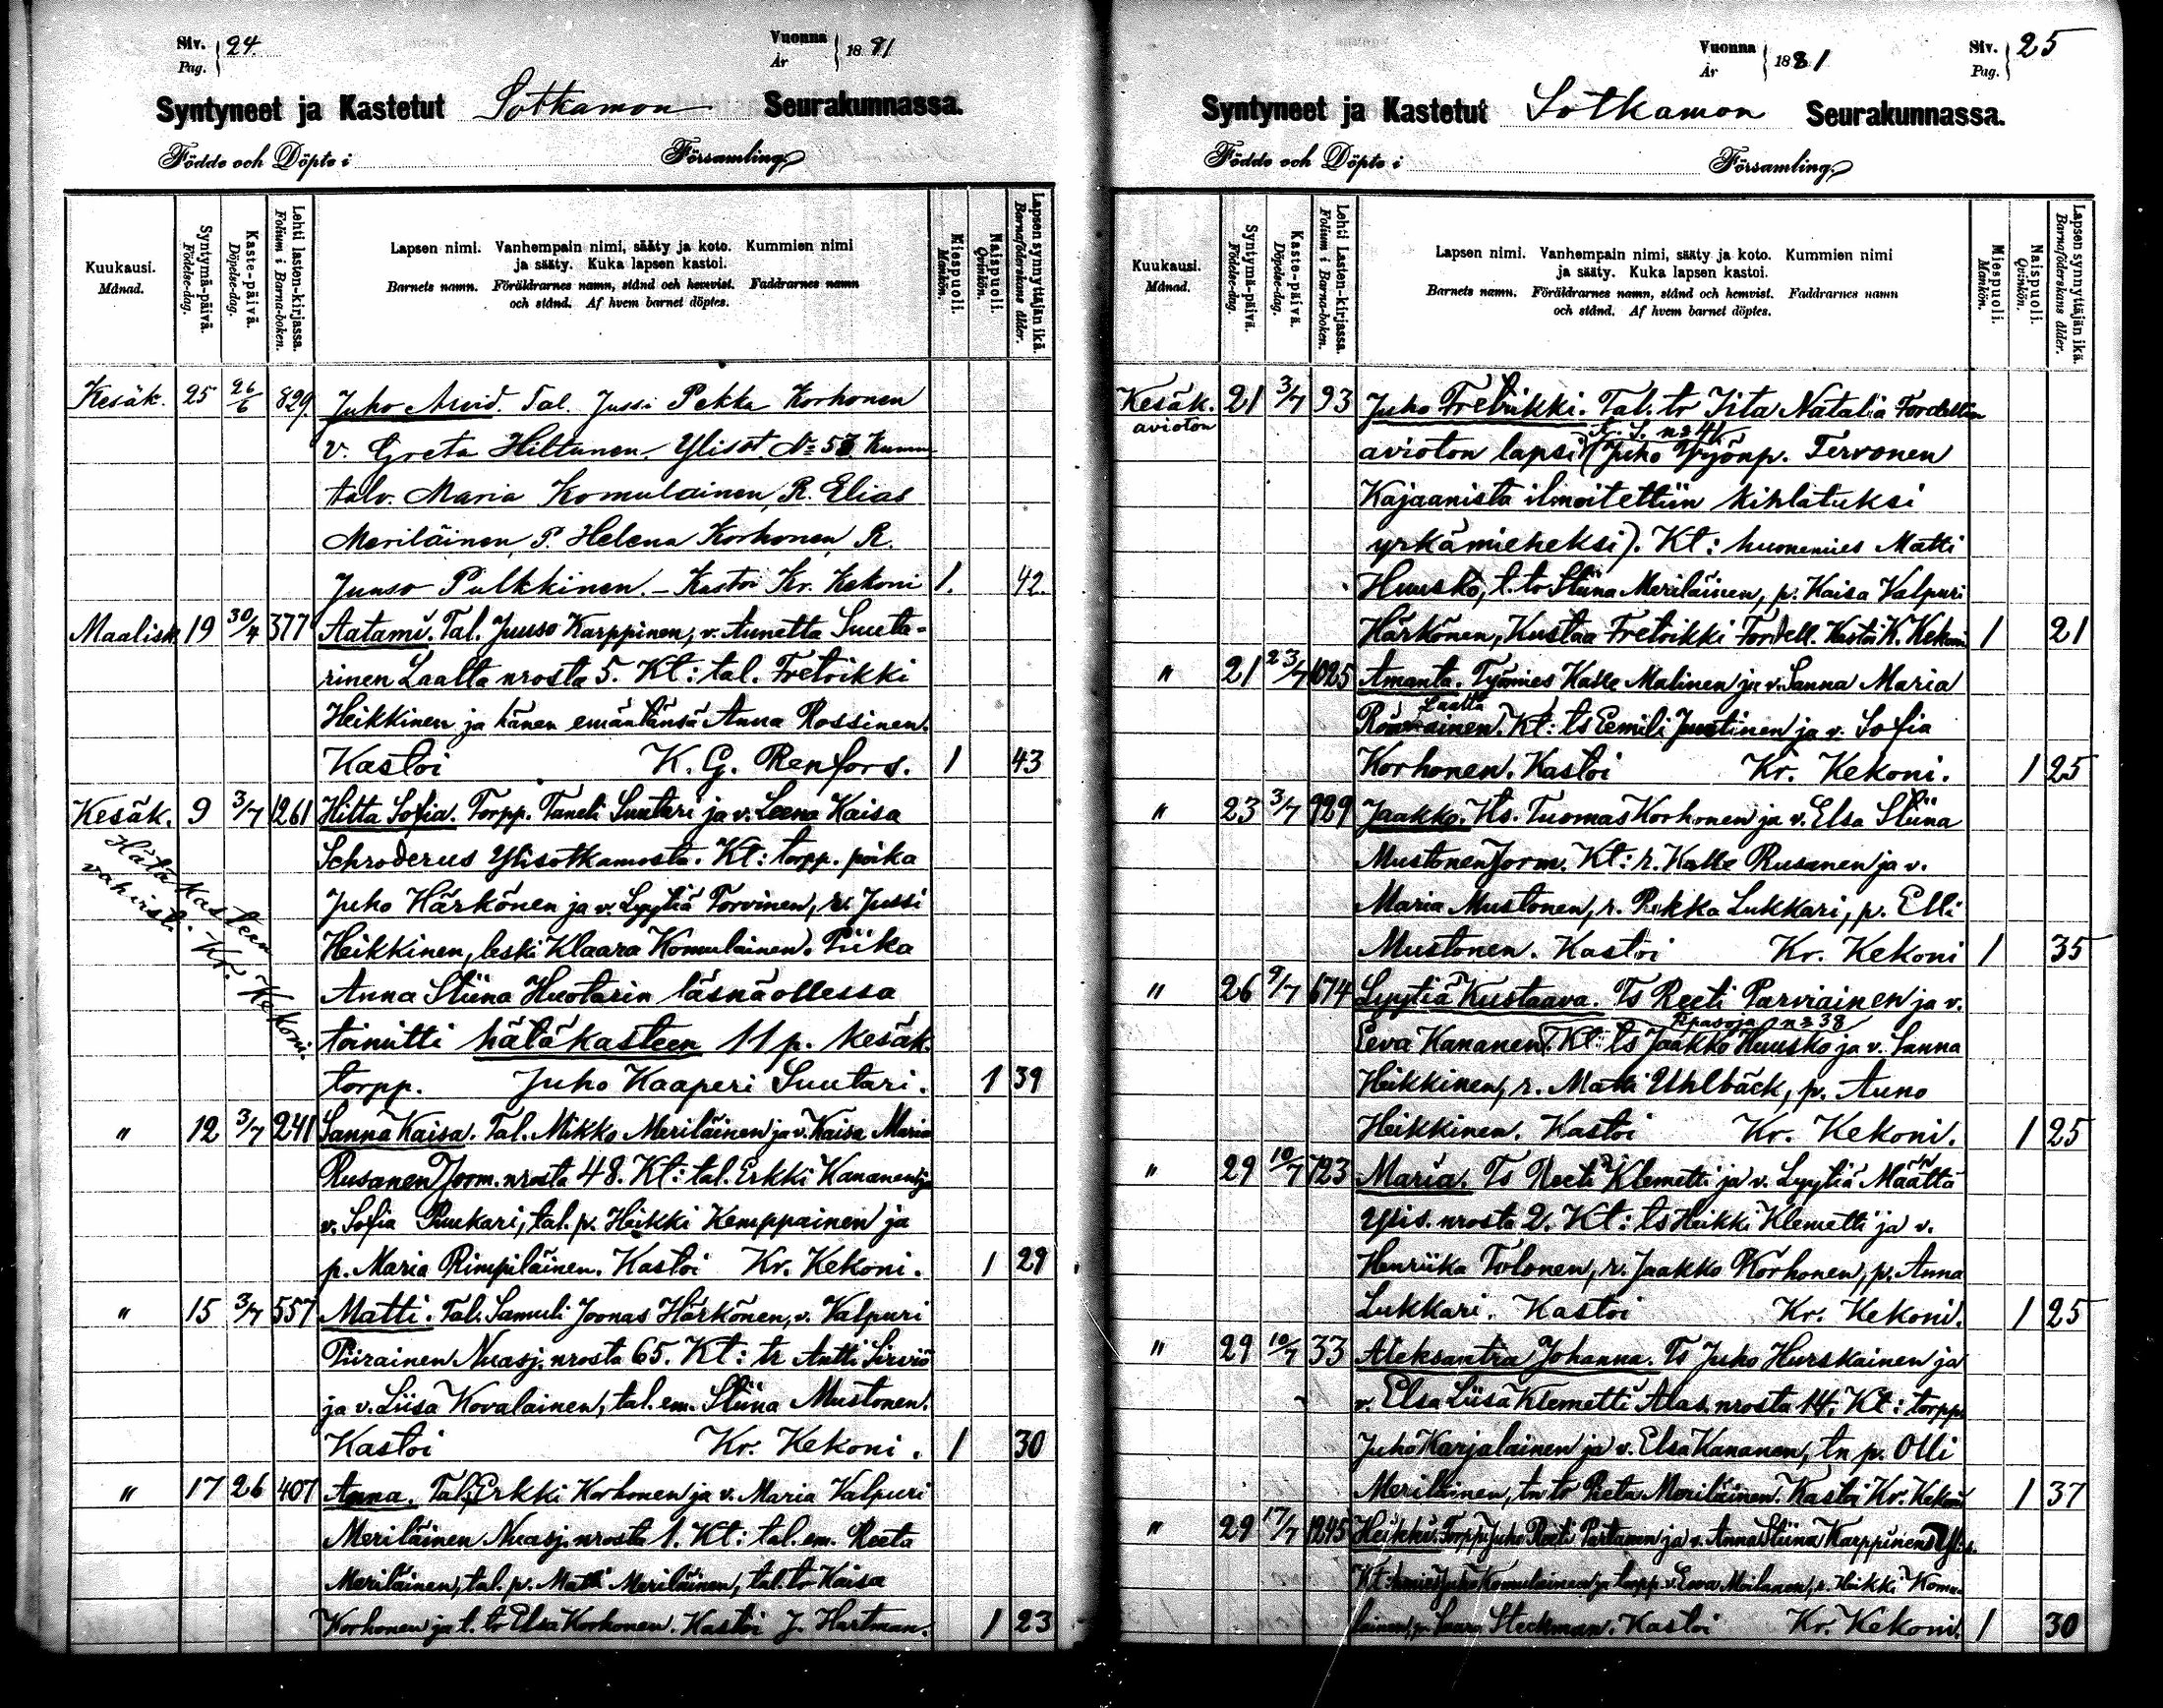 Siv. Pag. 24.
Vuonna År 1881
Syntyneet ja Kastetut Sotkamon Seurakunnassa.
Födde och Döpte i Församling.
Kuukausi. Månad.
Syntymä-päivä. Födelse-dag.
Kaste-päivä. Döpelse-dag.
Lehti lasten-kirjassa. Folium i Barna-boken.
Lapsen nimi. Vanhempain nimi, sääty ja koto. Kummien nimi
ja sääty. Kuka lapsen kastoi.
Barnets namn. Föräldrarnes namn, stånd och hemvist. Faddrarnes namn
och stånd. Af hvem barnet döptes.
Miespuoli. Mankön.
Naispuoli. Qvinkön.
Lapsen synnyttäjän ikä. Barnaföderskans ålder.
Kesäk. 25 26/6 829 Juho Arvid. Tal. Jussi Pekka Korhonen
v. Greta Hiltunen. Ylisot. No 57 Kumm
talv. Maria Komulainen, R. Elias
Meriläinen, P. Helena Korhonen, R.
Juuso Pulkkinen. – Kastoi Kr. Kekoni 1. 42.
Maalisk. 19 30/4 377 Aatami. Tal. Juuso Karppinen, v. Annetta Suuta-
rinen Laatta nrosta 5. Kt: tal. Fretrikki
Heikkinen ja hänen emäntänsä Anna Rossinen.
Kastoi K. G. Renfors. 1 43
Kesäk. 9 3/7 1261 Hilta Sofia. Torpp. Taneli Suutari ja v. Leena Kaisa
Hätäkasteen vahvisti Kr. Kekoni.
Schroderus Ylisotkamosta. Kt: torpp. poika
Juho Härkönen ja v. Lyytiä Torvinen, r. Jussi
Heikkinen, leski Klaara Komulainen. Piika
Anna Stiina Huotarin läsnäollessa
toimitti hätäkasteen 11 p. kesäk.
torpp. Juho Kaaperi Suutari. 1 39
" 12 3/7 241 Sanna Kaisa. Tal. Mikko Meriläinen ja v. Kaisa Maria
Rusanen Jorm. nrosta 48. Kt: tal. Erkki Kananen ja
v. Sofia Puukari, tal. p. Heikki Kemppainen ja
p. Maria Rimpiläinen. Kastoi Kr. Kekoni. 1 29
" 15 3/7 557 Matti. Tal. Samuli Joonas Härkönen, v. Valpuri
Piirainen Nuasj. nrosta 65. Kt: tr Antti Sirviö
ja v. Liisa Kovalainen, tal. em. Stiina Mustonen.
Kastoi Kr. Kekoni. 1 30
" 17 26 407 Anna. Tal. Erkki Korhonen ja v. Maria Valpuri
Meriläinen Nuasj. nrosta 1. Kt: tal. em. Reeta
Meriläinen, tal. p. Matti Meriläinen, tal. tr Kaisa
Korhonen ja t. tr Elsa Korhonen. Kastoi J. Hartman. 1 23
Vuonna År 1881
Siv. Pag. 25
Syntyneet ja Kastetut Sotkamon Seurakunnassa.
Födde och Döpte i Församling.
Kuukausi. Månad.
Syntymä-päivä. Födelse-dag.
Kaste-päivä. Döpelse-dag.
Lehti Lasten-kirjassa. Folium i Barna-boken.
Lapsen nimi. Vanhempain nimi, sääty ja koto. Kummien nimi
ja sääty. Kuka lapsen kastoi.
Barnets namn. Föräldrarnes namn, stånd och hemvist. Faddrarnes namn
och stånd. Af hvem barnet döptes.
Miespuoli. Mankön.
Naispuoli. Qvinkön.
Lapsen synnyttäjän ikä. Barnaföderskans ålder.
Kesäk. 21 3/7 93 Juho Fretrikki. Tal. tr Iita Natalia Fordellin
avioton
avioton lapsi (Juho Yrjönp. Tervonen
Kajaanista ilmoitettiin kihlatuksi
yrkämieheksi). Kt: huonemies Matti
Huusko, t. tr Stiina Meriläinen, p. Kaisa Valpuri
Härkönen, Kustaa Fretrikki Fordell. Kastoi K. Kekoni 1 21
" 21 23/7 1025 Amanta. Työmies Kalle Malinen ja v. Sanna Maria
Laatta
Kt: ts Eemili Juustinen ja v. Sofia
Korhonen. Kastoi Kr. Kekoni. 1 25
" 23 3/7 929 Jaakko. Ks. Tuomas Korhonen ja v. Elsa Stiina
Mustonen Jorm. Kt: r. Kalle Rusanen ja v.
Maria Mustonen, r. Pekka Lukkari, p. Elli
Mustonen. Kastoi Kr. Kekoni 1 35
" 26 9/7 674 Lyytiä Kustaava. Ts Reeti Parviainen ja v.
n:o 38
Eeva Kananen. Kt: ts Jaakko Huusko ja v. Sanna
Heikkinen, r. Matti Uhlbäck, p. Auno
Heikkinen. Kastoi Kr. Kekoni. 1 25
" 29 10/7 723 Maria. Ts Reeti Klemetti ja v. Lyytiä Määttä
Ylis. nrosta 2. Kt: ts Heikki Klemetti ja v.
Henriika Tolonen, r. Jaakko Korhonen, p. Anna
Lukkari. Kastoi Kr. Kekoni. 1 25
" 29 10/7 33 Aleksantra Johanna. Ts Juho Hurskainen ja
v. Elsa Liisa Klemetti Alas. nrosta 14. Kt: torpp.
Juho Karjalainen ja v. Elsa Kananen, tn p. Olli
Meriläinen, tn tr Reeta Meriläinen. Kastoi Kr. Kekoni 1 37
" 29 17/7 1245 Heikki. Torpp. Juho Reeti Partanen ja v. Anna Stiina Karppinen Ylis.
Kt: Juho Komulainen ja torpp. v. Eeva Moilanen, r. Heikki Komu-
lainen, p. Saara Steckman. Kastoi Kr. Kekoni. 1 30